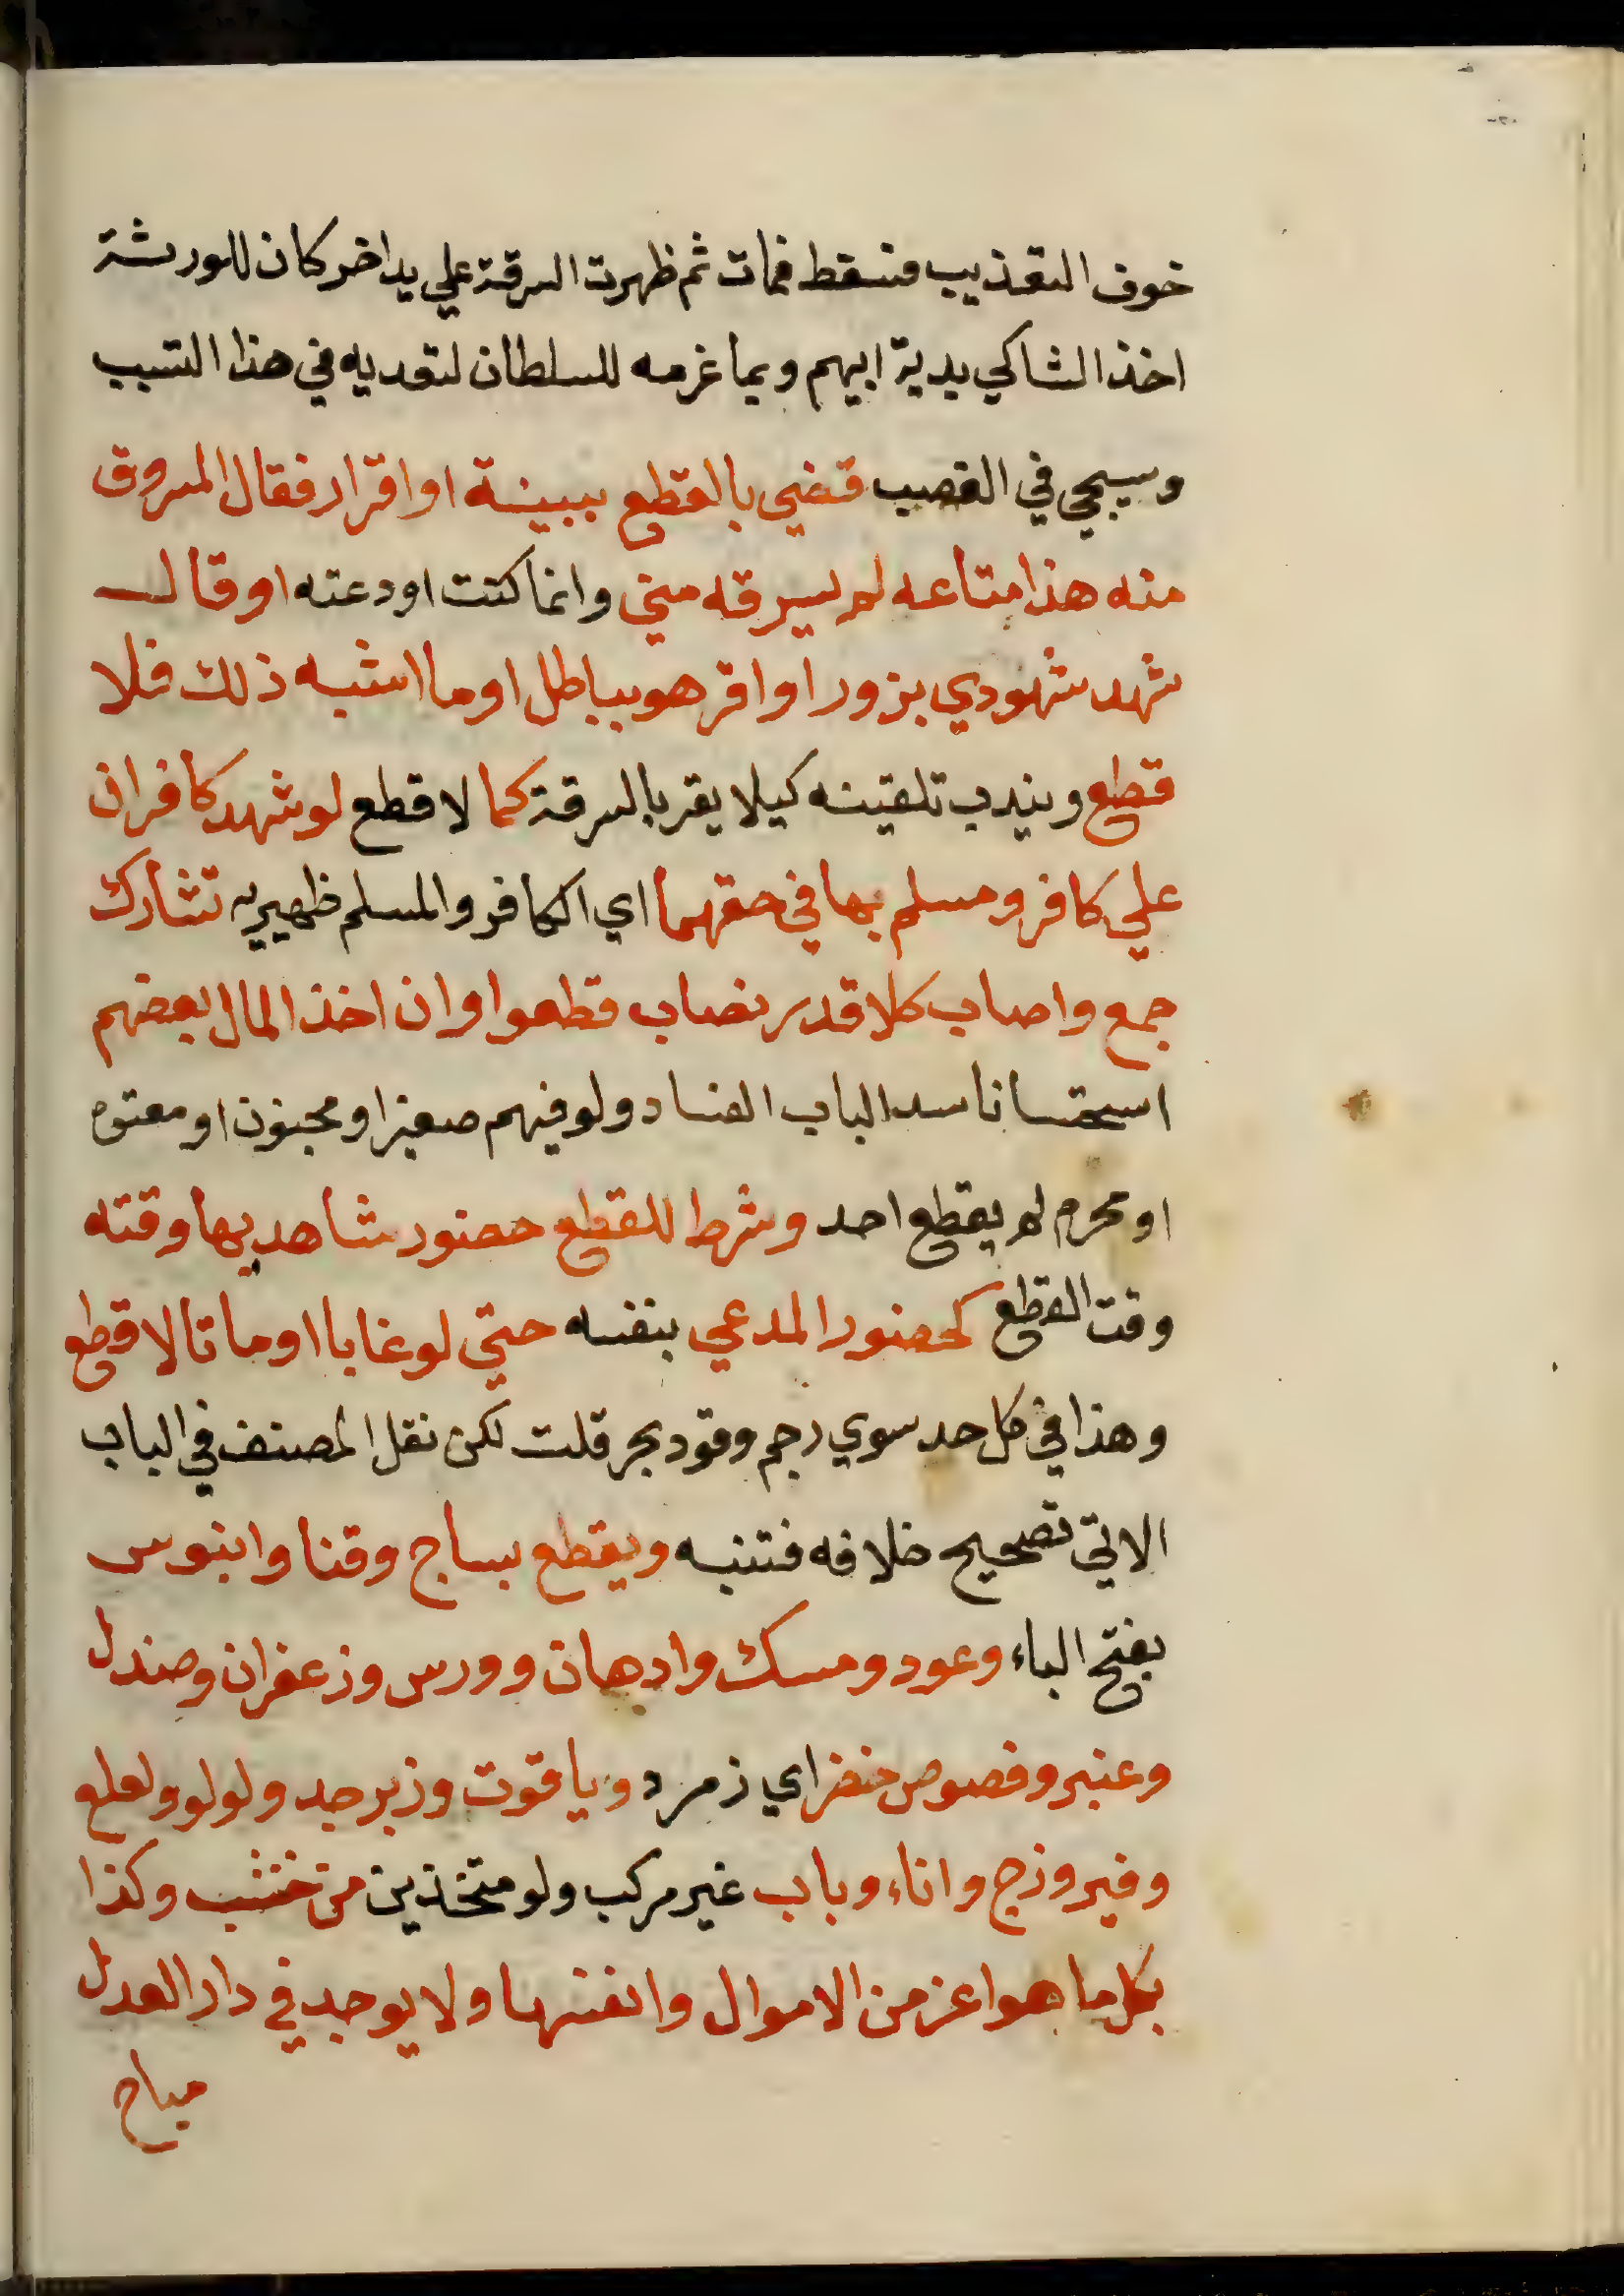 خوف التعذيب فسقط فمات ثم ظهرت السرقة علي يد اخر كان للورثة
اخذ الشاكي بدية ابيهم وبما غرمه للسلطان لتعديه في هذا التسبب
وسيجي في الغصب قضي بالقطع ببينة او اقرار فقال المسروق
منه هذا متاعه لم يسرقه مني وانما كنت اودعته او قال
شهد شهودي بزور او اقر هو بباطل او ما اشبه ذلك فلا
قطع ويندب تلقينه كيلا يقر بالسرقة كما لا قطع لو شهد كافران
علي كافر ومسلم بها في حقهما اي الكافر والمسلم ظهيريه تشارك
جمع واصاب كلا قدر نصاب قطعوا وان اخذ المال بعضهم
استحسانا سدا لباب الفساد ولو فيهم صغيرا و مجنون او معتوه
او محرم لم يقطع احد وشرط للقطع حضور شاهديها وقته
وقت القطع كحضور المدعي بنفسه حتي لو غابا او ماتا لا قطع
وهذا في كل حد سوي رجم وقود بحر قلت لكن نقل المصنف في الباب
الاتي تصحيح خلافه فتنبه ويقطع بساج وقنا وابنوس
بفتح الباء وعود ومسك وادهان وورس وزعفران وصندل
وعنبر وفصوص خضر اي زمرد وياقوت وزبرجد ولولو ولعلع
وفيروزج واناء وباب غير مركب ولو متخذين من خشب وكذا
بكل ما هو اعز من الاموال وانفسها ولا يوجد في دار العدل
مباح